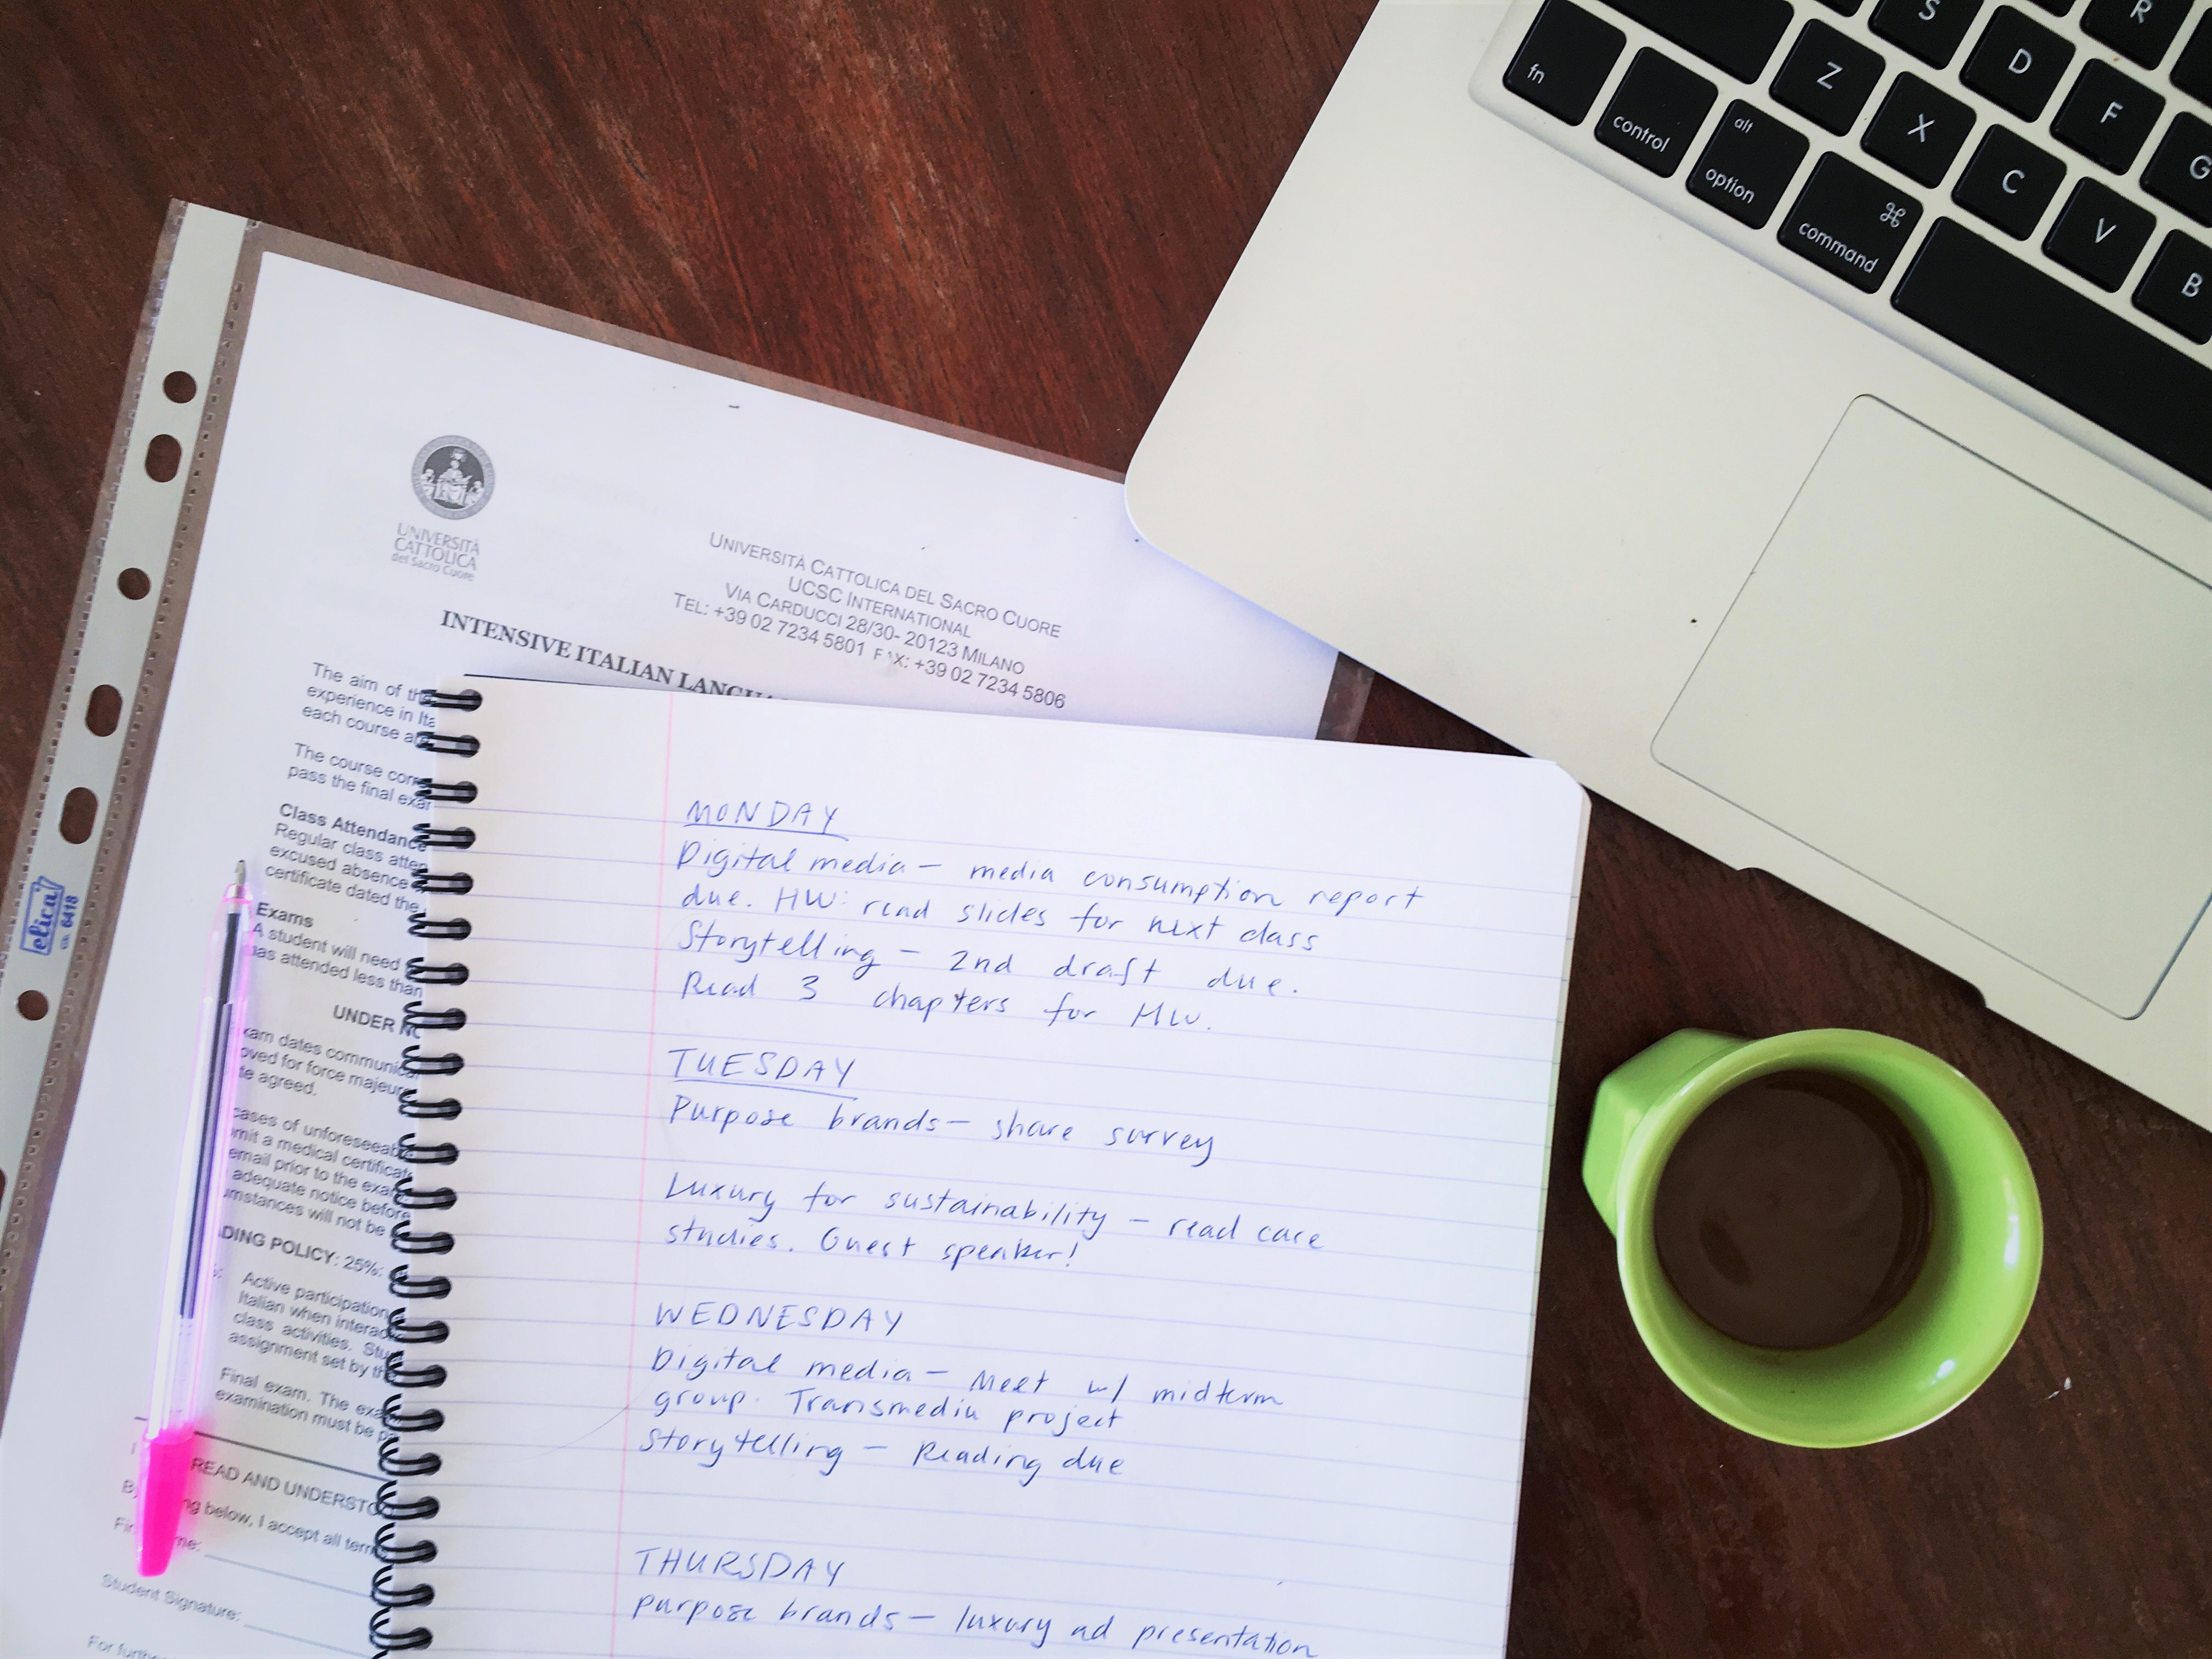 fn
control
alt
option
⌘
command
Z
X
C
V
B
S
D
F
G
R
UNIVERSITÀ
CATTOLICA
del Sacro Cuore
UNIVERSITÀ CATTOLICA DEL SACRO CUORE
UCSC INTERNATIONAL
VIA CARDUCCI 28/30- 20123 MILANO
TEL: +39 02 7234 5801 FAX: +39 02 7234 5806
INTENSIVE ITALIAN
The aim of
experience in
each course
The course
pass the final
Class Attendance
Regular class
excused absence
certificate dated the
Exams
A student will need
has attended less than
UNDER
exam dates
for force majeure
agreed.
cases of
a medical
email prior to the
adequate notice before
will not be
POLICY: 25%:
Active participation
Italian when
class activities.
assignment set by
Final exam. The
examination must be
READ AND
below, I accept all
Student Signature:
For
elica
ca. 6418
MONDAY
Digital media - media consumption report
due. HW: read slides for next class
Storytelling - 2nd draft due.
Read 3 chapters for HW.
TUESDAY
Purpose brands - share survey
Luxury for sustainability - read case
studies. Guest speaker!
WEDNESDAY
Digital media - Meet w/ midterm
group. Transmedia project
Storytelling - Reading due
THURSDAY
purpose brands - luxury ad presentation